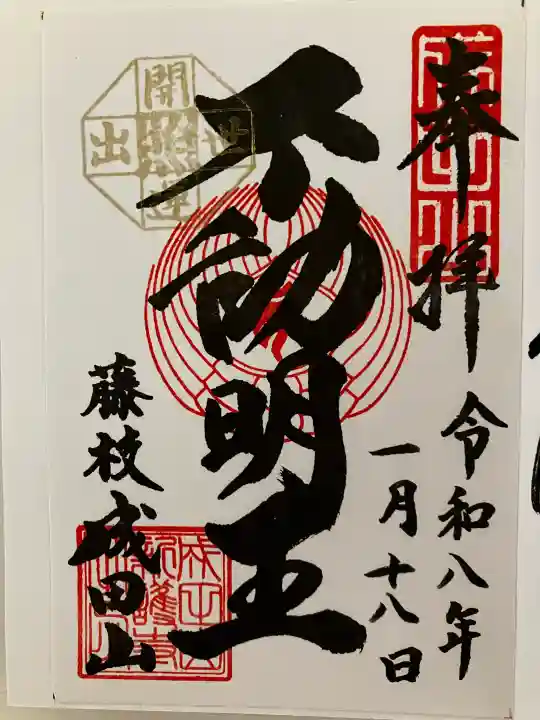 奉拝
令和八年
一月十八日
不動明王
開運
出世
藤枝成田山